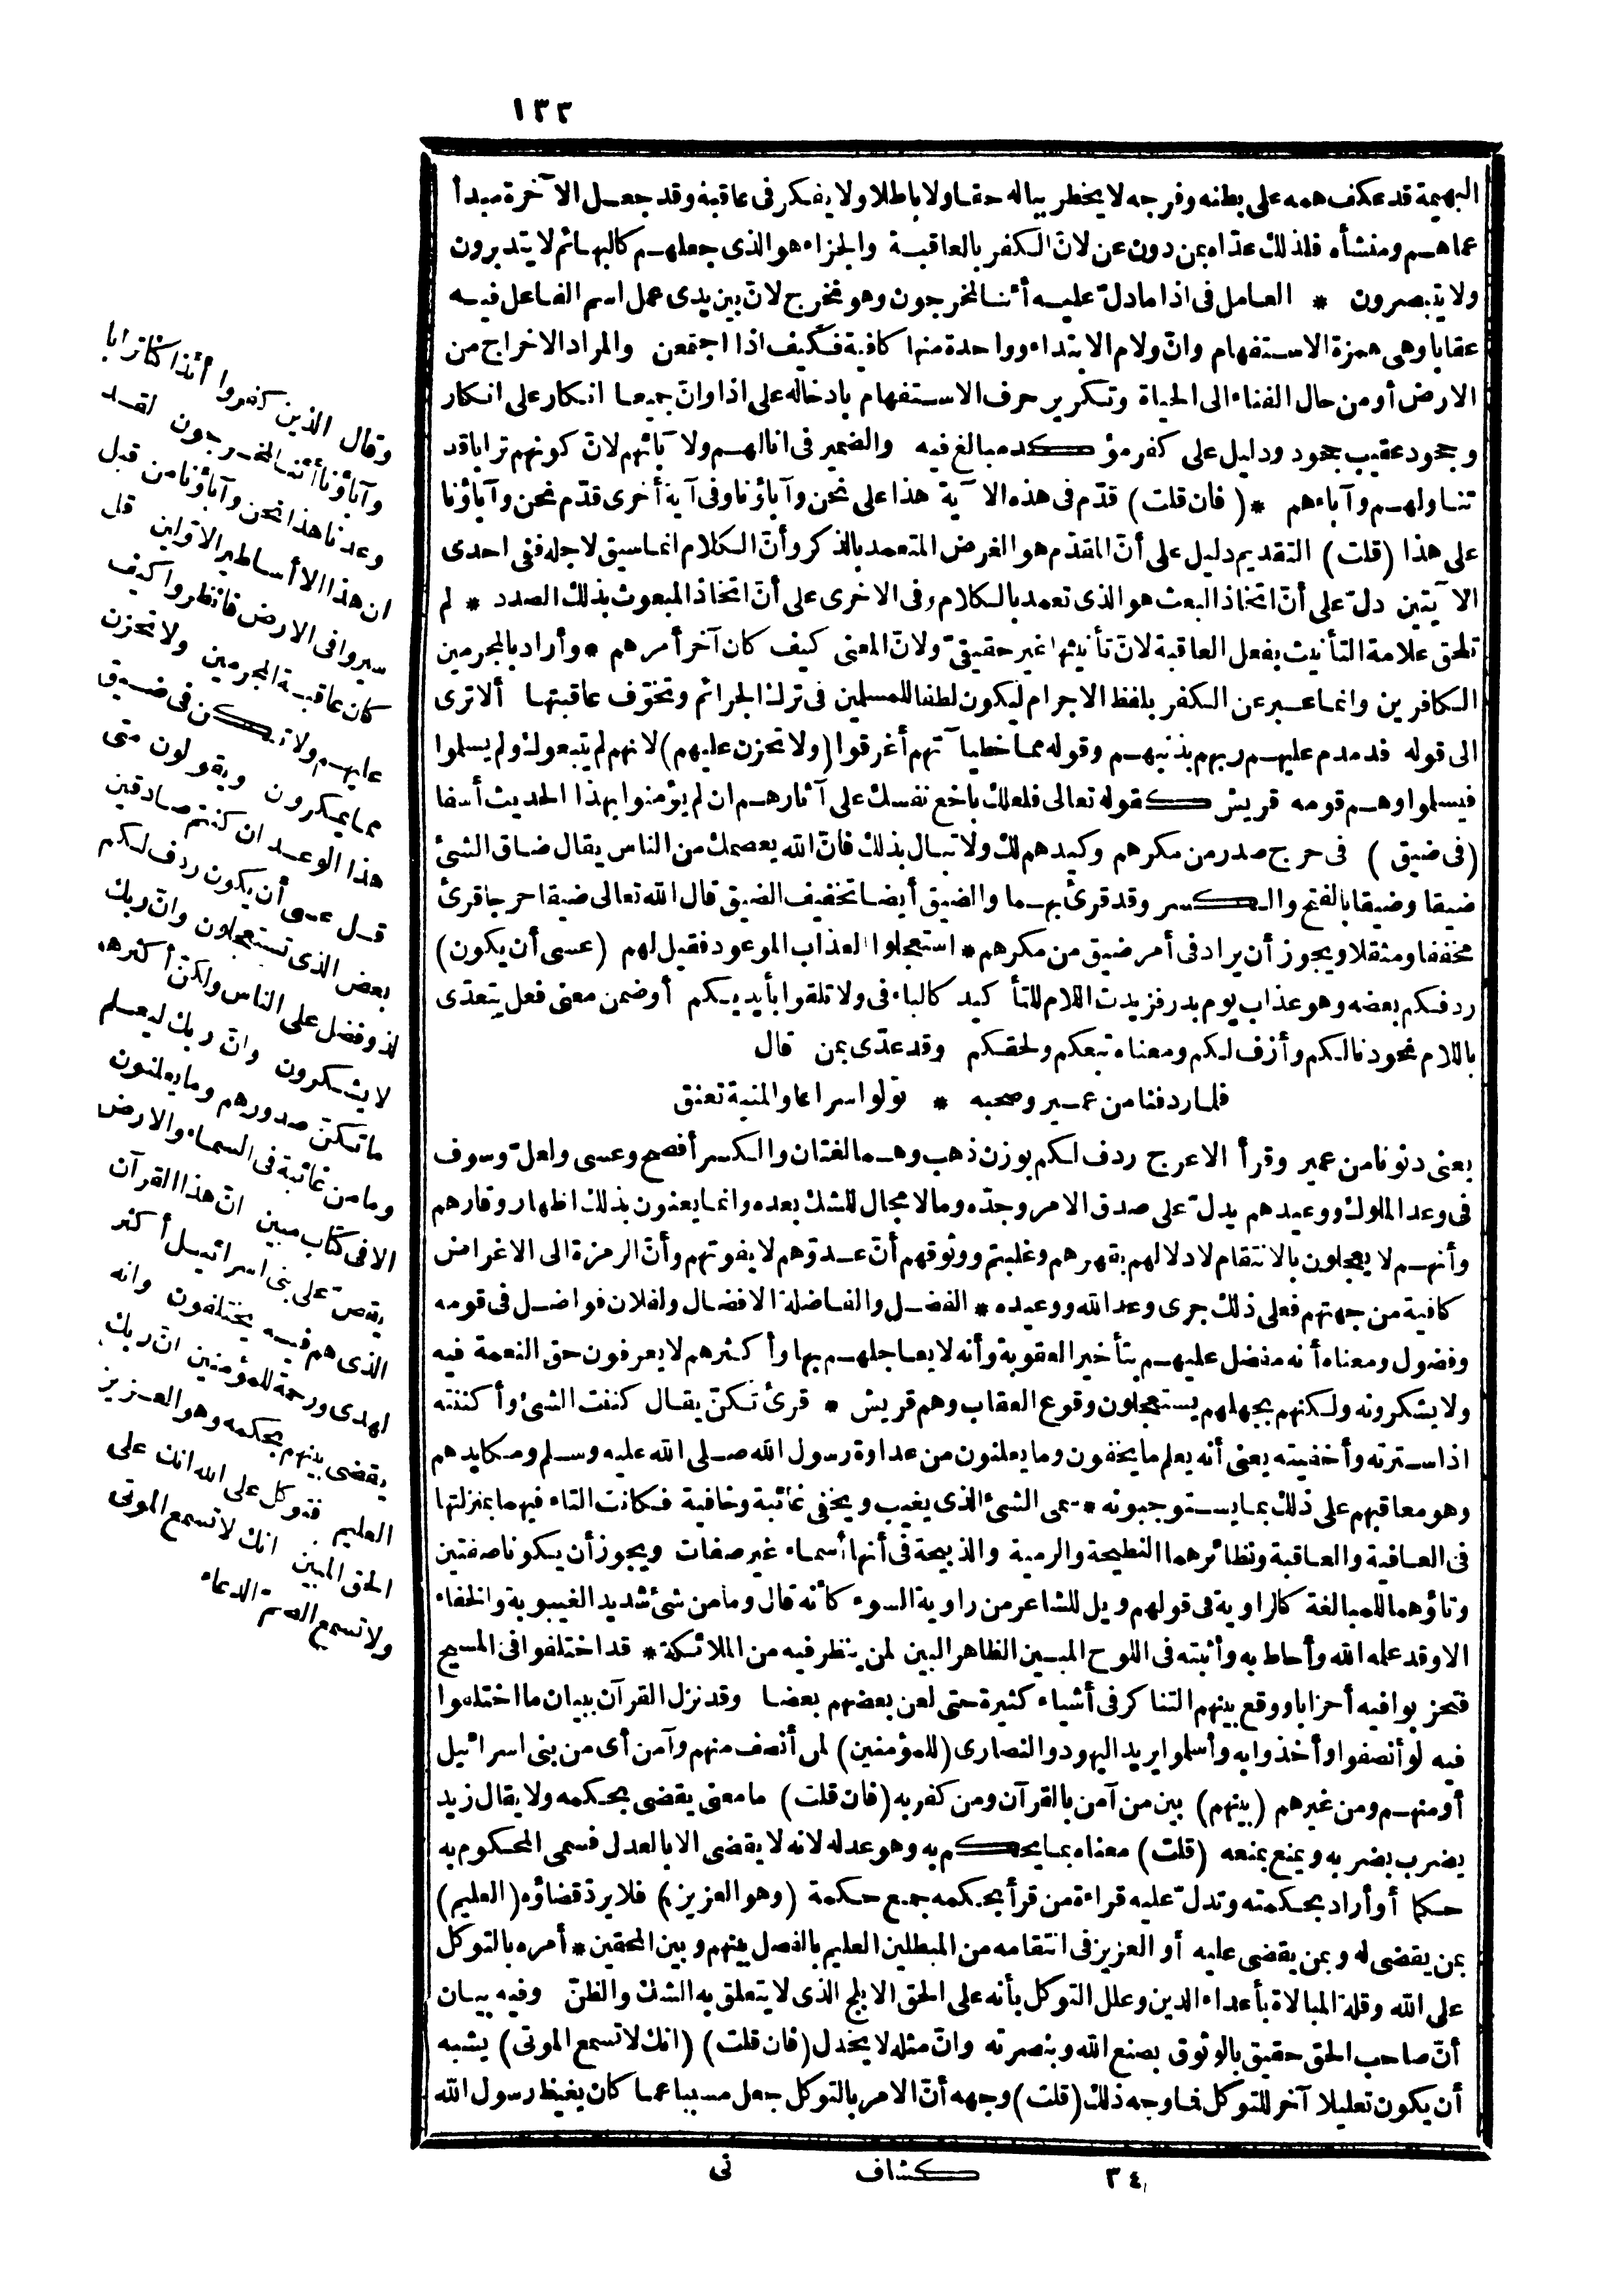 ١٣٣
البهيمة قد عكف همه على بطنه وفرجه لا يخطر بباله حقا ولا باطلا ولا يفكر فى عاقبة وقد جعل الآخرة مبدأ
عماهم ومنشأه فلذلك عدّاه بمن دون عن لانّ الكفر بالعاقبة والجزاء هو الذى جعلهم كالبهائم لا يتدبرون
ولا يتبصرون * العامل فى اذا ما دلّ عليه أئنا لمخرجون وهو نخرج لانّ بين يدى عمل اسم الفاعل فيه
عقابا وهى همزة الاستفهام وانّ ولام الابتداء وواحدة منها كافية فكيف اذا اجتمعن والمراد الاخراج من
الارض أو من حال الفناء الى الحياة وتكرير حرف الاستفهام بادخاله على اذا وانّ جميعا انكار على انكار
وجحود عقيب جحود ودليل على كفر مؤكد مبالغ فيه والضمير فى انا لهم ولآبائهم لانّ كونهم ترابا قد
تناولهم وآباءهم * (فان قلت) قدّم فى هذه الآية هذا على نحن وآباؤنا وفى آية أخرى قدّم نحن وآباؤنا
على هذا (قلت) التقديم دليل على أنّ المقدّم هو الغرض المتعمد بالذكر وأنّ الكلام انما سيق لاجله ففى احدى
الآيتين دلّ على أنّ اتخاذ البعث هو الذى تعمد بالكلام وفى الاخرى على أنّ اتخاذ المبعوث بذلك الصدد * لم
تلحق علامة التأنيث بفعل العاقبة لانّ تأنيثها غير حقيقىّ ولانّ المعنى كيف كان آخر أمرهم * وأراد بالمجرمين
الكافرين وانما عبر عن الكفر بلفظ الاجرام ليكون لطفا للمسلمين فى ترك الجرائم وتخوّف عاقبتها ألا ترى
الى قوله فدمدم عليهم ربهم بذنبهم وقوله مما خطيآتهم أغرقوا (ولا تحزن عليهم) لانهم لم يتبعوك ولم يسلموا
فيسلموا وهم قومه قريش كقوله تعالى فلعلك باخع نفسك على آثارهم ان لم يؤمنوا بهذا الحديث أسفا
(فى ضيق) فى حرج صدر من مكرهم وكيدهم لك ولا تبال بذلك فانّ الله يعصمك من الناس يقال ضاق الشئ
ضيقا وضيقا بالفتح والكسر وقد قرئ بهما والضيق أيضا تخفيف الضيق قال الله تعالى ضيقا حرجا قرئ
مخففا ومثقلا ويجوز أن يراد فى أمر ضيق من مكرهم * استعجلوا العذاب الموعود فقيل لهم (عسى أن يكون)
ردفكم بعضه وهو عذاب يوم بدر فزيدت اللام للتأكيد كالباء فى ولا تلقوا بأيديكم أو ضمن معنى فعل يتعدّى
باللام نحو دنا لكم وأزف لكم ومعناه تبعكم ولحقكم وقد عدّى بمن قال
فلما ردفنا من عمير وصحبه * تولوا سراعا والمنية تعنق
يعنى دنونا من عمير وقرأ الاعرج ردف لكم بوزن ذهب وهما لغتان والكسر أفصح وعسى ولعلّ وسوف
فى وعد الملوك ووعيدهم يدلّ على صدق الامر وجدّه وما لا مجال للشك بعده وانما يعنون بذلك اظهار وقارهم
وأنهم لا يعجلون بالانتقام لادلالهم بقهرهم وغلبتهم ووثوقهم أنّ عدوّهم لا يفوتهم وأنّ الرمزة الى الاغراض
كافية من جهتهم فعلى ذلك جرى وعد الله ووعيده * الفضل والفاضلة الافضال ولفلان فواضل فى قومه
وفضول ومعناه أنه مفضل عليهم بتأخير العقوبة وأنه لا يعاجلهم بها وأكثرهم لا يعرفون حق النعمة فيه
ولا يشكرونه ولكنهم بجهلهم يستعجلون وقوع العقاب وهم قريش * قرئ تكنّ يقال كننت الشئ وأكننته
اذا سترته وأخفيته يعنى أنه يعلم ما يخفون وما يعلنون من عداوة رسول الله صلى الله عليه وسلم ومكايدهم
وهو معاقبهم على ذلك بما يستوجبونه * سمى الشئ الذى يغيب ويخفى غائبة وخافية فكانت التاء فيهما بمنزلتها
فى العافية والعاقبة ونظائرهما النطيحة والرمية والذبيحة فى أنها أسماء غير صفات ويجوز أن يكونا صفتين
وتاؤهما للمبالغة كالراوية فى قولهم ويل للشاعر من راوية السوء كأنه قال وما من شئ شديد الغيبوبة والخفاء
الا وقد علمه الله وأحاط به وأثبته فى اللوح المبين الظاهر البين لمن ينظر فيه من الملائكة * قد اختلفوا فى المسيح
فتحزبوا فيه أحزابا ووقع بينهم التناكر فى أشياء كثيرة حتى لعن بعضهم بعضا وقد نزل القرآن ببيان ما اختلفوا
فيه لو أنصفوا وأخذوا به وأسلموا يريد اليهود والنصارى (للمؤمنين) لمن أنصف منهم وآمن أى من بنى اسرائيل
أو منهم ومن غيرهم (بينهم) بين من آمن بالقرآن ومن كفر به (فان قلت) ما معنى يقضى بحكمه ولا يقال زيد
يضرب بضربه ويمنع بمنعه (قلت) معناه بما يحكم به وهو عدله لانه لا يقضى الا بالعدل فسمى المحكوم به
حكما أو أراد بحكمته وتدلّ عليه قراءة من قرأ بحكمه جمع حكمة (وهو العزيز) فلا يردّ قضاؤه (العليم)
بمن يقضى له وبمن يقضى عليه أو العزيز فى انتقامه من المبطلين العليم بالفصل بينهم وبين المحقين * أمره بالتوكل
على الله وقلة المبالاة بأعداء الدين وعلل التوكل بأنه على الحق الابلج الذى لا يتعلق به الشك والظنّ وفيه بيان
أنّ صاحب الحق حقيق بالوثوق بصنع الله وبنصرته وانّ مثله لا يخذل (فان قلت) (انك لا تسمع الموتى) يشبه
أن يكون تعليلا آخر للتوكل فما وجه ذلك (قلت) وجهه أنّ الامر بالتوكل جعل مسببا عما كان يغيظ رسول الله
وقال الذين كفروا أئذا كنا ترابا
وآباؤنا أئنا لمخرجون لقد
وعدنا هذا نحن وآباؤنا من قبل
ان هذا الا أساطير الاوّلين قل
سيروا فى الارض فانظروا كيف
كان عاقبة المجرمين ولا تحزن
عليهم ولا تكن فى ضيق
مما يمكرون ويقولون متى
هذا الوعد ان كنتم صادقين
قل عسى أن يكون ردف لكم
بعض الذى تستعجلون وانّ ربك
لذو فضل على الناس ولكنّ أكثرهم
لا يشكرون وانّ ربك ليعلم
ما تكنّ صدورهم وما يعلنون
وما من غائبة فى السماء والارض
الا فى كتاب مبين انّ هذا القرآن
يقصّ على بنى اسرائيل أكثر
الذى هم فيه يختلفون وانه
لهدى ورحمة للمؤمنين انّ ربك
يقضى بينهم بحكمه وهو العزيز
العليم فتوكل على الله انك على
الحق المبين انك لا تسمع الموتى
ولا تسمع الصمّ الدعاء
٣٤ كشاف نى